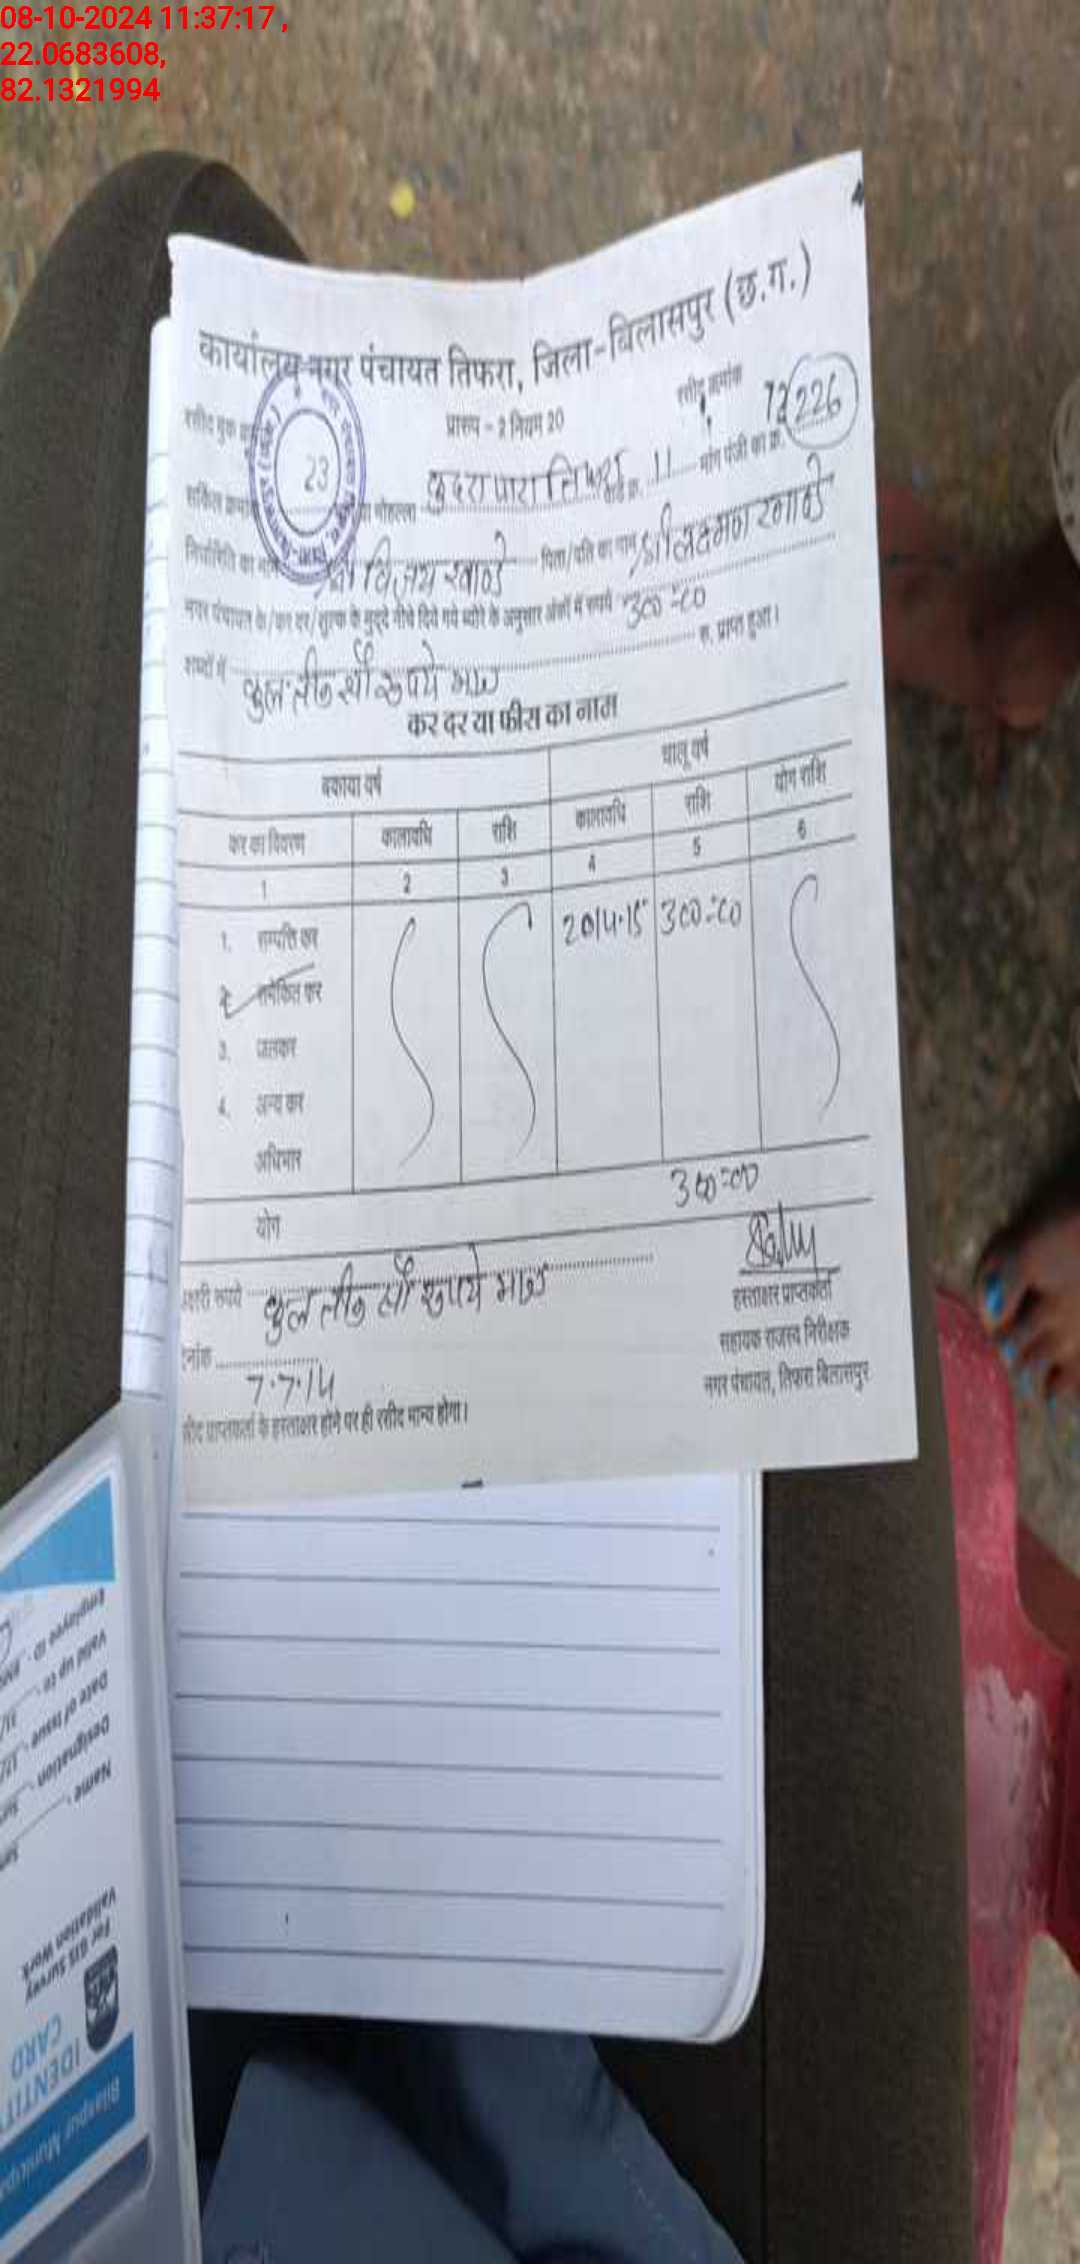 08-10-2024 11:37:17 ,
22.0683608,
82.1321994
कार्यालय नगर पंचायत तिफरा, जिला-बिलासपुर (छ.ग.)
रसीद बुक रसीद क्रमांक 72
प्रारुप - 2 नियम 20
23
सर्किल मोहल्ला कुदरापारा तिफरा वार्ड क्र. 11 मांग पंजी का क्र. 226
निर्धारिती का नाम श्री विजय खाण्डे पिता/पति का नाम श्री लक्ष्मण खाण्डे
नगर पंचायत के/कर दर/शुल्क के मुद्दे नीचे दिये गये ब्योरे के अनुसार अंकों में रुपये 300=00
शब्दों में कुल तीन सौ रूपये मात्र रु. प्राप्त हुआ।
कर दर या फीस का नाम
बकाया वर्ष चालू वर्ष
कर का विवरण कालावधि राशि कालावधि राशि योग राशि
1 2 3 4 5 6
1. सम्पत्ति कर 2014.15 300=00
2. समेकित कर
3. जलकर
4. अन्य कर
अधिभार
योग 300=00
अक्षरी रूपये कुल तीन सौ रूपये मात्र
हस्ताक्षर प्राप्तकर्ता
नांक 7.7.14
सहायक राजस्व निरीक्षक
नगर पंचायत, तिफरा बिलासपुर
सीद प्राप्तकर्ता के हस्ताक्षर होने पर ही रसीद मान्य होगा।
Bilaspur Municipa
IDENTITY
CARD
For GIS Survey
Validation Work
Name
Designation
Date of Issue
Valid up to
Employee ID